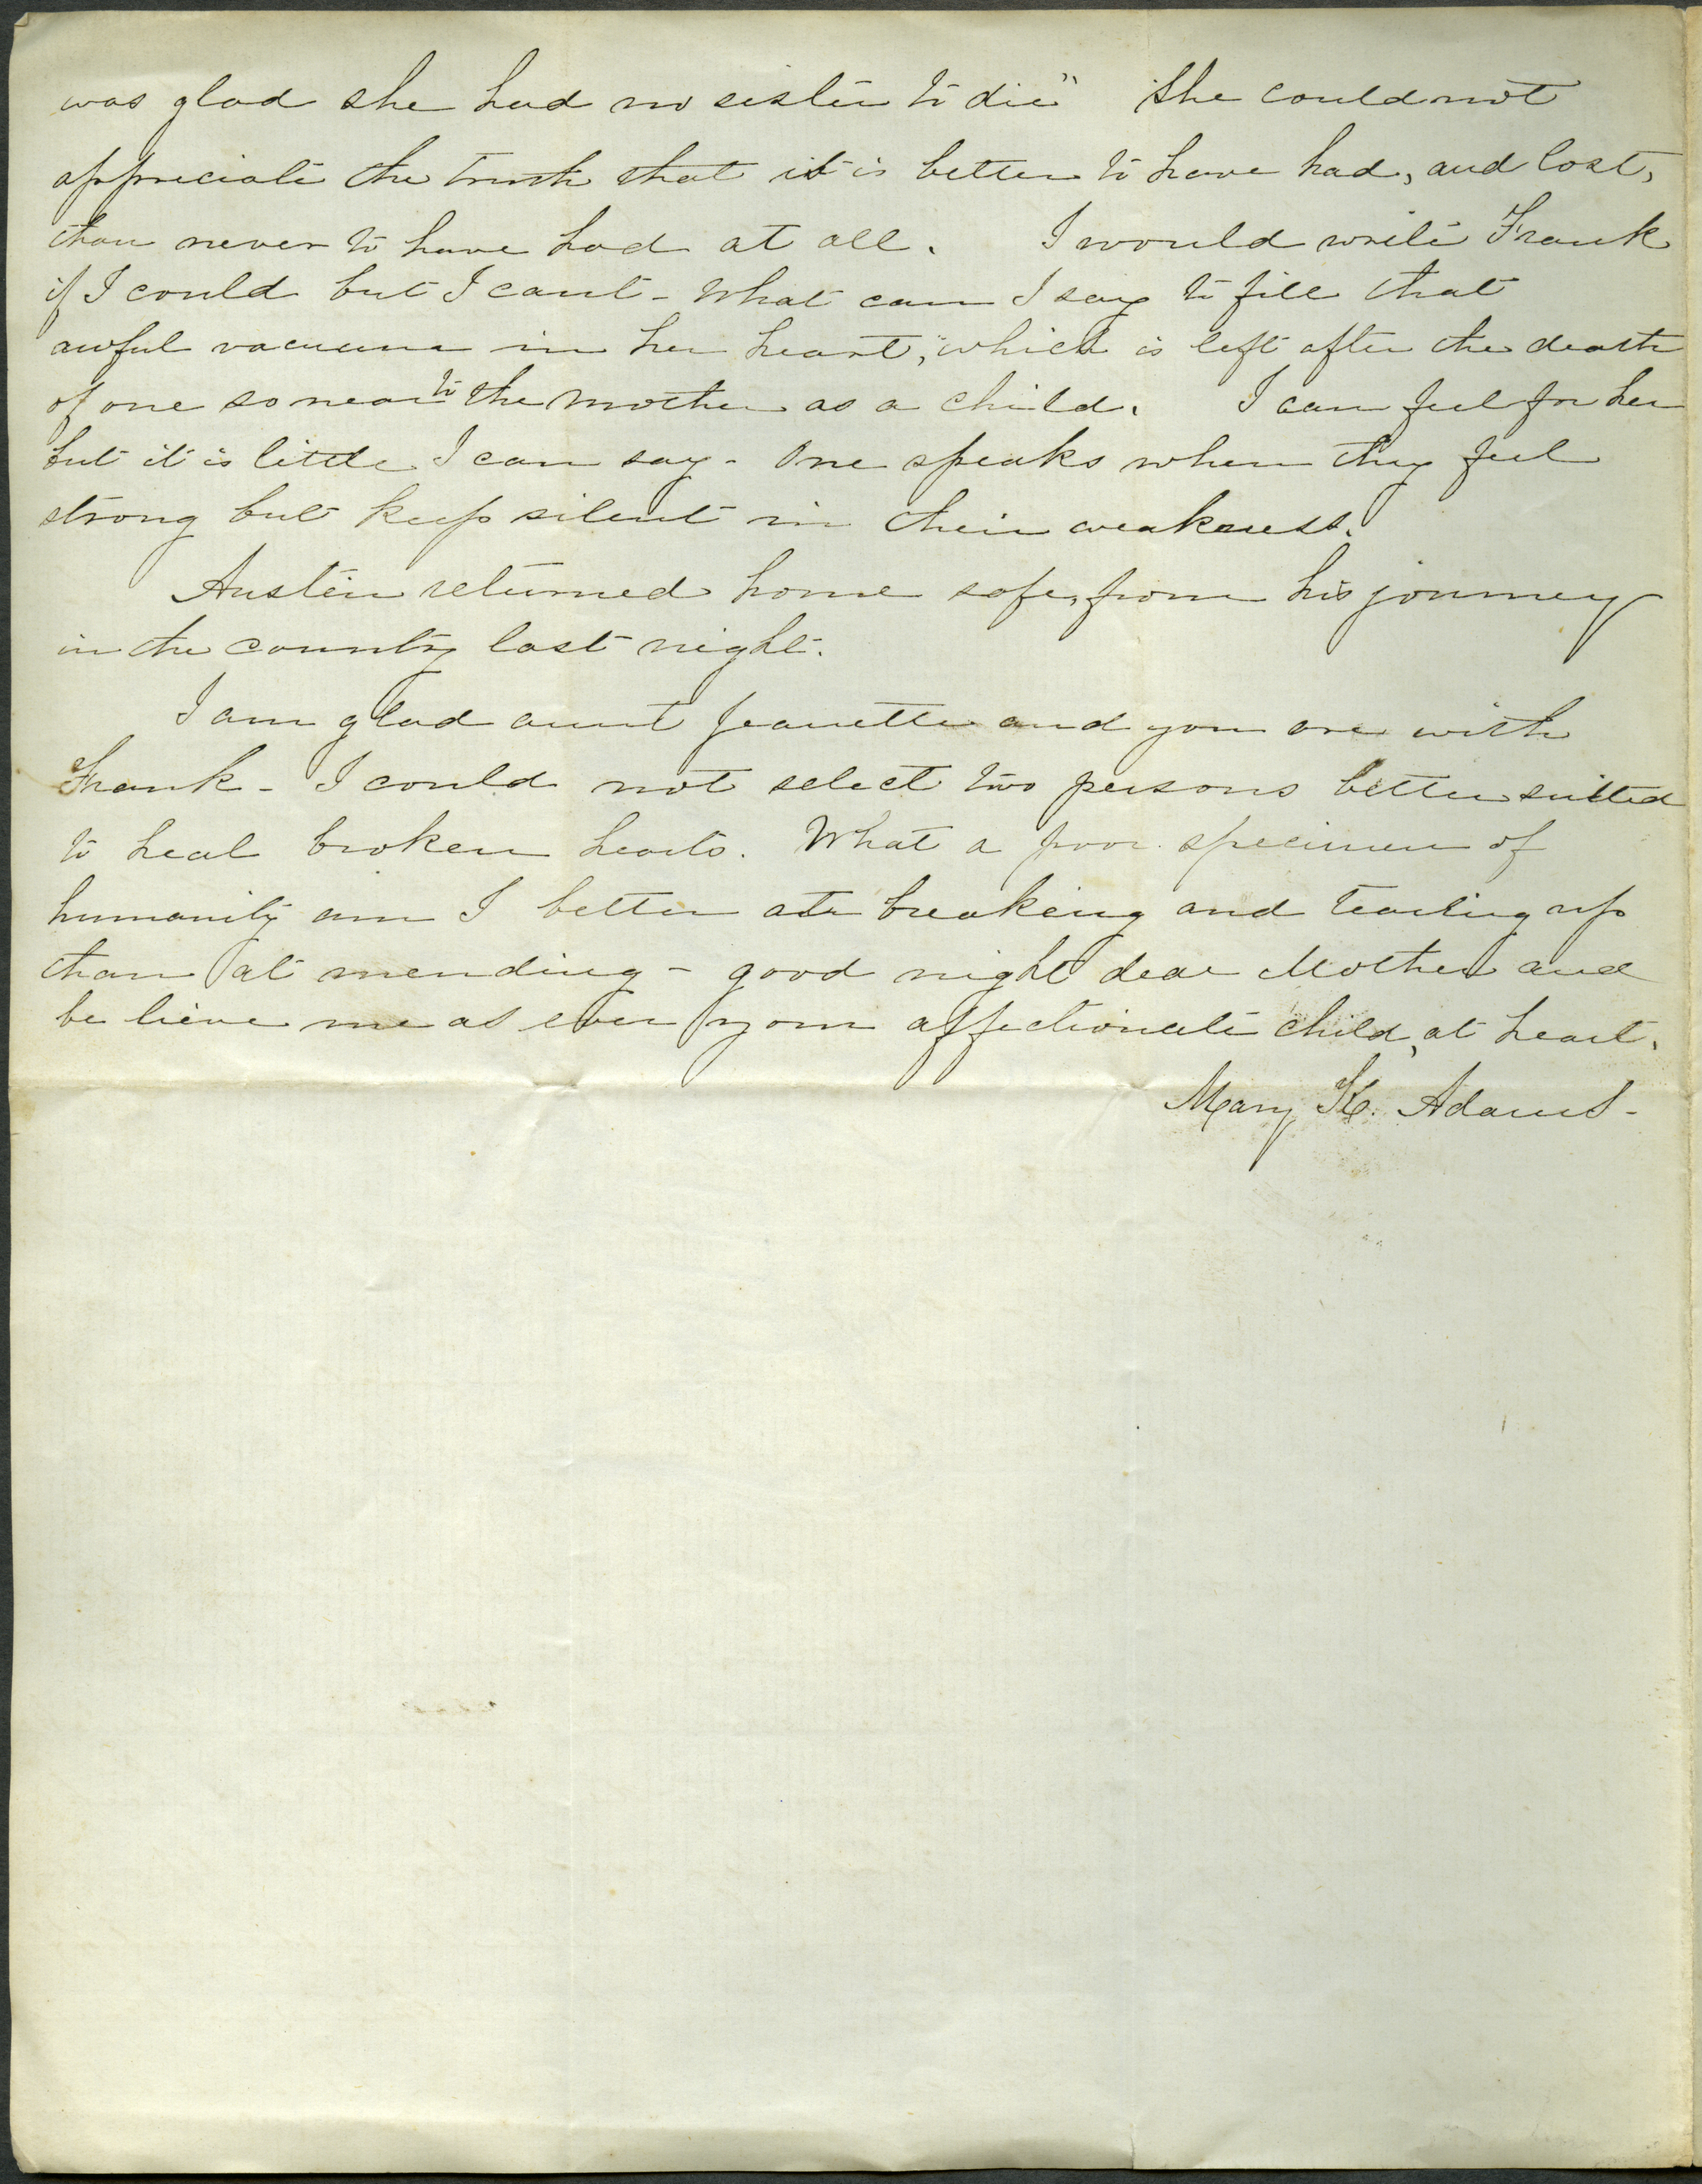 was glad she had no sister to die" She could not
appreciate the truth that it is better to have had, and lost,
than never to have had at all. I would write Frank
if I could but I cant - What can I say to fill that
awful vacuum in her heart, which is left after the death
of one so near to the mother as a child. I can feel for her
but it is little I can say - One speaks when they feel
strong but keep silent in their weakness.
Austin returned home safe, from his journey
in the country last night.
I am glad aunt Jeanette and you are with
Frank - I could not select two persons better suited
to heal broken hearts. What a poor specimen of
humanity am I better at breaking and tearing up
than at mending - good night dear Mother and
be lieve me as ever your affectionate child, at heart.
Mary K. Adams -